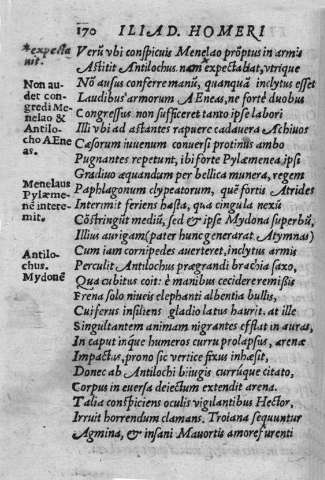 170 ILIAD. HOMERI
*expecta
nit.
Verū vbi conspicuis Menelao prōptus in armis
Astitit Antilochus non expectabat, vtrique
Non au-
det con-
gredi Me-
nelao &
Antilo-
cho AEne
as.
Nō ausus conferre manū, quanquā inclytus esset
Laudibus armorum AEneas, ne fortè duobus
Congressus non sufficeret tanto ipse labori
Illi vbi ad astantes rapuere cadauera Achiuos
Cæsorum iuuenum conuersi protinus ambo
Pugnantes repetunt, ibi forte Pylæmenea ipsi
Gradiuo æquandum per bellica munera, regem
Menelaus
Pylæme-
nē intere-
mit.
Paphlagonum clypeatorum, quē fortis Atrides
Interimit feriens hasta, qua cingula nexū
Cōstringūt mediū, sed & ipse Mydona superbū,
Illius aurigam (pater hunc generarat Atymnas)
Antilo-
chus.
Mydonē
Cum iam cornipedes auerteret, inclytus armis
Perculit Antilochus prægrandi brachia saxo,
Qua cubitus coit: è manibus cecidere remissis
Frena solo niueis elephanti albentia bullis,
Cui ferus insiliens gladio latus haurit. at ille
Singultantem animam nigrantes efflat in auras,
In caput inque humeros curru prolapsus, arenæ
Impactus, prono sic vertice fixus inhæsit,
Donec ab Antilochi biiugis currūque citato,
Corpus in euersa deiectum extendit arena.
Talia conspiciens oculis vigilantibus Hector,
Irruit horrendum clamans. Troiana sequuntur
Agmina, & insani Mauortis amore furenti